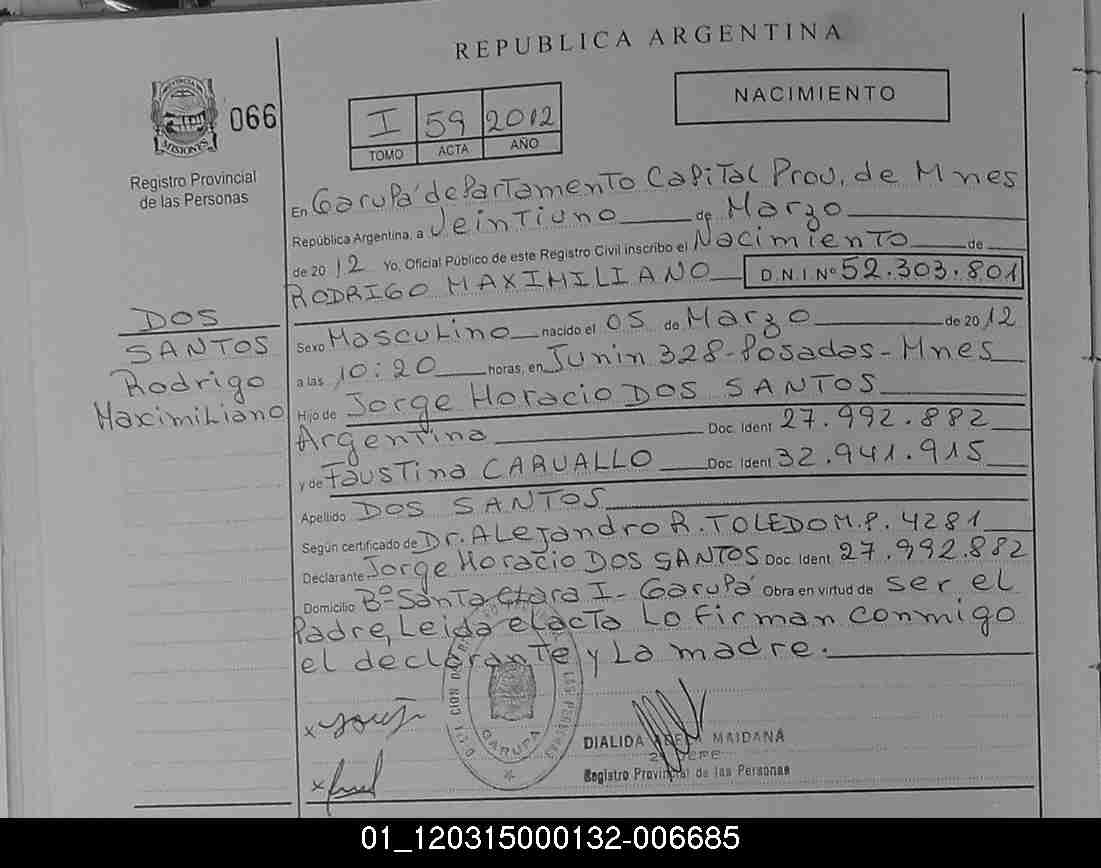 REPUBLICA ARGENTINA
066
Registro Provincial
de las Personas
I 59 2012
TOMO ACTA AÑO
NACIMIENTO
En Garupá departamento Capital Prov. de Mnes
República Argentina, a Veintiuno de Marzo
de 2012 Yo, Oficial Público de este Registro Civil inscribo el Nacimiento de
RODRIGO MAXIMILIANO D.N.I Nº 52.303.801
DOS
SANTOS
Rodrigo
Maximiliano
Sexo Masculino nacido el 05 de Marzo de 2012
a las 10:20 horas, en Junin 328-Posadas-Mnes
Hijo de Jorge Horacio DOS SANTOS
Argentina Doc. Ident 27.992.882
y de Faustina CARVALLO Doc. Ident 32.941.915
Apellido DOS SANTOS
Según certificado de Dr. Alejandro R. TOLEDO M.P. 4281
Declarante Jorge Horacio DOS SANTOS Doc. Ident 27.992.882
Domicilio Bº Santa Clara I - Garupá Obra en virtud de ser el
Padre, Leida el acta Lo firman conmigo
el declarante y La madre.
GARUPA
DIALIDA MAIDANA
Registro Provincial de las Personas
01_120315000132-006685